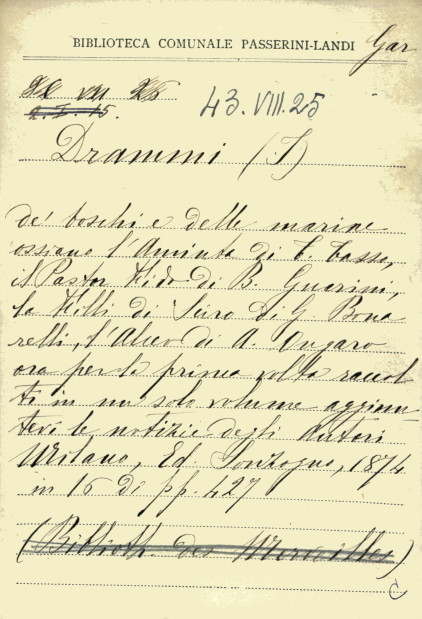 BIBLIOTECA COMUNALE PASSERINI-LANDI Gar
2. I. 15.
43.VIII.25
Drammi (I)
de' boschi e delle marine
ossiano l'Aminta di T. Tasso,
il Pastor Fido di B. Guarini,
la Filli di Sciro di G. Bona
relli, l'Alceo di A. Ongaro
ora per la prima volta raccol
ti in un solo volume aggiun
tevi le notizie degli Autori
Milano, Ed. Sonzogno, 1874
in 16 di pp. 427
(Biblioth. des Merveilles)
C